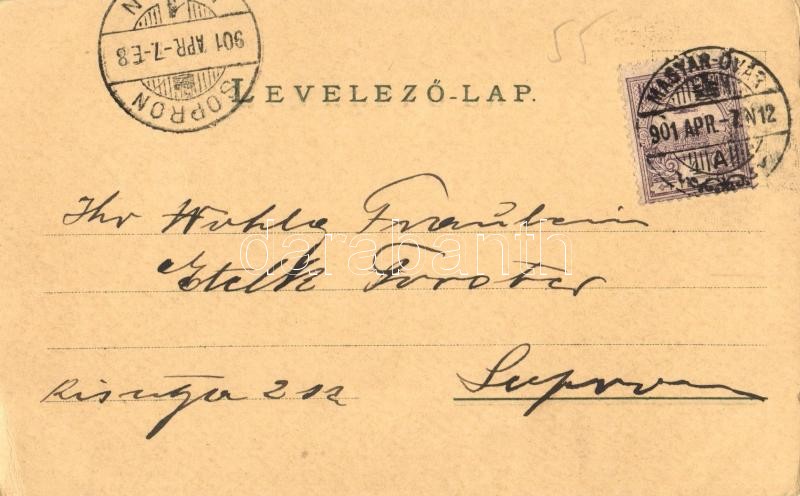 SOPRON
901 APR.-7.-E.8
55
LEVELEZŐ-LAP.
MAGYAR-ÓVÁR
901 APR.-7.N12
A
Ihr Wohlg Fräulein
Etelk Forster
Kis utza 2 sz
Sopron
darabanth